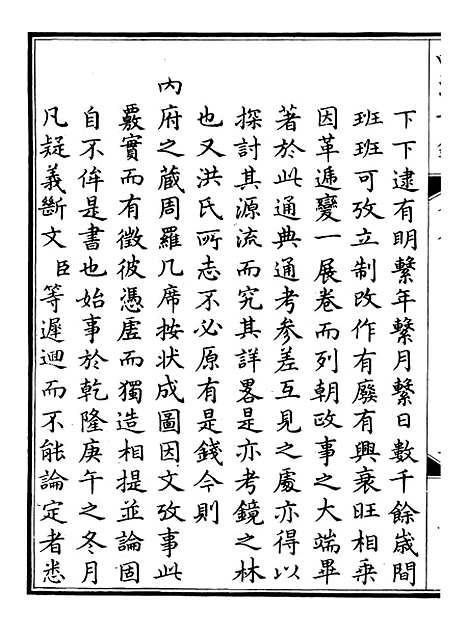 下下逮有明繫年繫月繫日數千餘歳間
班班可攷立制改作有廢有興衰旺相乗
因革遞變一展卷而列朝政事之大端畢
著於此通典通考參差互見之處亦得以
探討其源流而究其詳畧是亦考鏡之林
也又洪氏所志不必原有是錢今則
內府之藏周羅几席按状成圖因文攷事此
覈實而有徵彼憑虛而獨造相提並論固
自不侔是書也始事於乾隆庚午之冬月
凡疑義斷文臣等遲迴而不能論定者悉